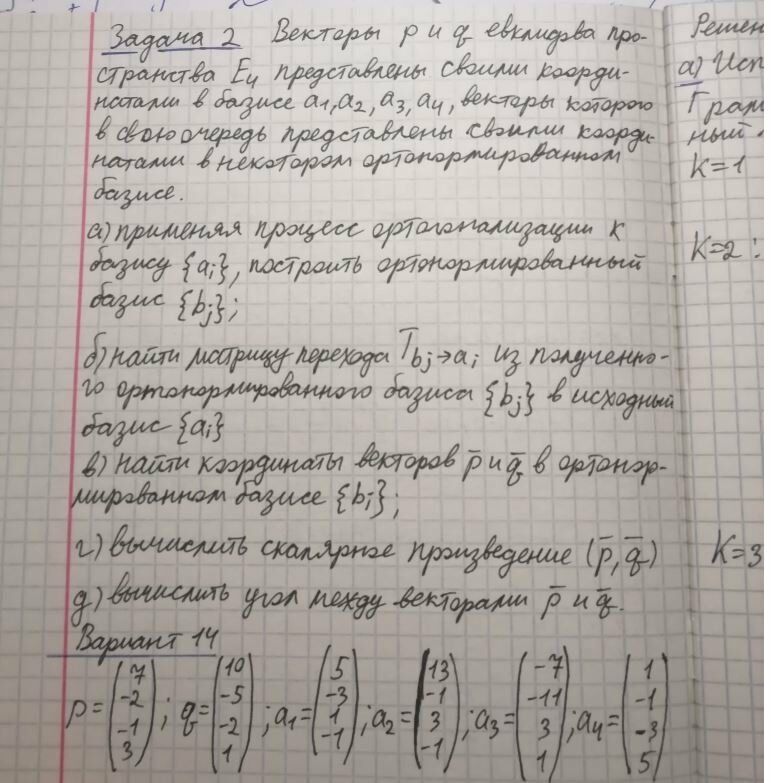 Задача 2 Векторы p и q евклидова про-
странства E₄ представлены своими коорди-
натами в базисе a₁, a₂, a₃, a₄, векторы которого
в свою очередь представлены своими коорди-
натами в некотором ортонормированном
базисе.
а) применяя процесс ортогонализации к
базису {aᵢ}, построить ортонормированный
базис {bⱼ};
б) найти матрицу перехода T bⱼ→aᵢ из полученно-
го ортонормированного базиса {bⱼ} в исходный
базис {aᵢ}
в) найти координаты векторов p̄ и q̄ в ортонор-
мированном базисе {bᵢ};
г) вычислить скалярное произведение (p̄, q̄)
д) вычислить угол между векторами p̄ и q̄.
Вариант 14
p = (7 -2 -1 3); q = (10 -5 -2 1); a₁ = (5 -3 1 -1); a₂ = (13 -1 3 -1); a₃ = (-7 -11 3 1); a₄ = (1 -1 -3 5)
Решен
а) Исп
Грам
ный
K=1
K=2:
K=3